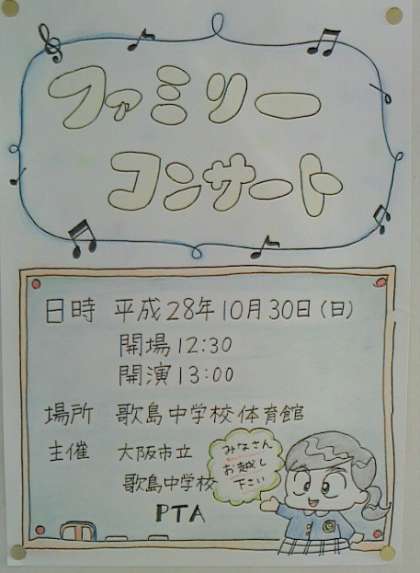 ファミリー
コンサート
日時 平成28年10月30日(日)
開場12:30
開演13:00
場所 歌島中学校体育館
主催 大阪市立
歌島中学校
PTA
みなさん
お越し
下さい